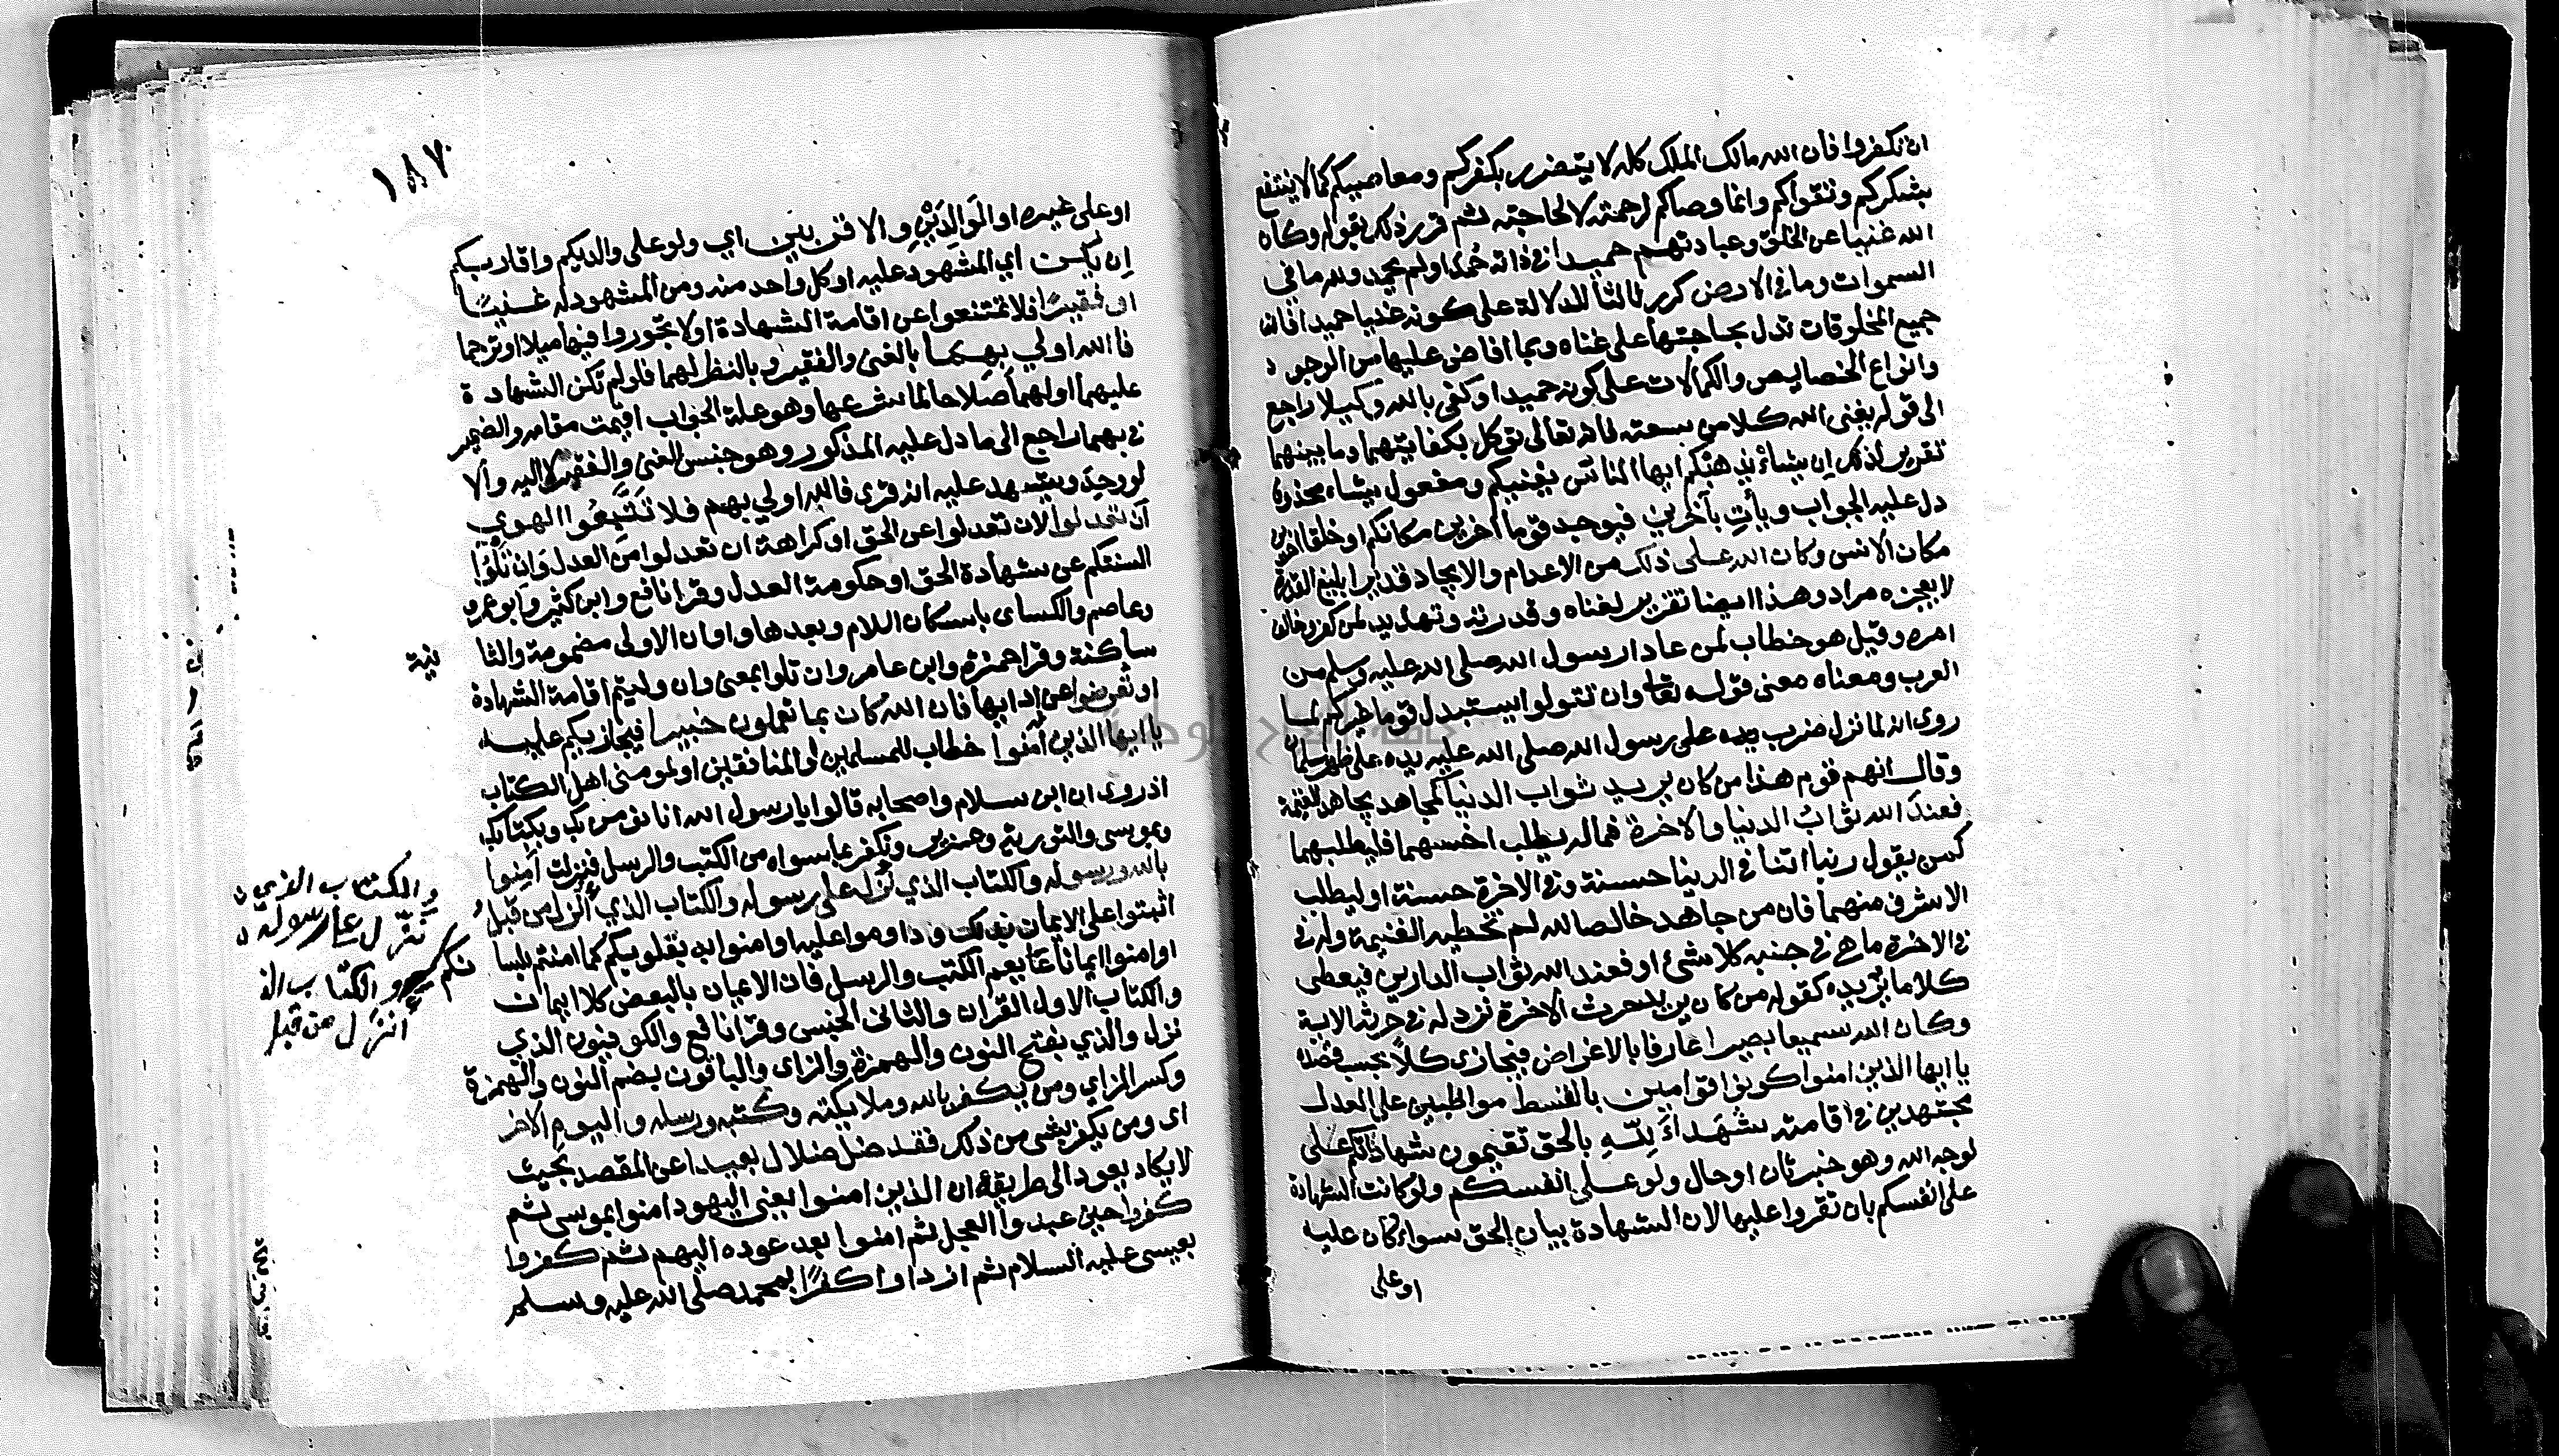 ان تكفروا فان الله مالك الملك كله لا يتضرر بكفركم ومعاصيكم كما لا ينتفع
بشكركم وتقواكم وانما وصاكم لرحمته لا لحاجته ثم قرر ذلك بقوله وكان
الله غنيا عن الخلق وعبادتهم حميدا في ذاته حُمد او لم يحمد ولله ما في
السموات وما في الارض كرر ثالثا للدلالة على كونه غنيا حميدا فان
جميع المخلوقات تدل بحاجتها على غناه وبما افاض عليها من الوجود
وانواع الخصايص والكمالات على كونه حميدا وكفى بالله وكيلا راجع
الى قوله يغنى الله كلا من سعته فانه تعالى توكل بكفايتهما وما بينهما
تقرير لذلك ان يشاء يذهبكم ايها الناس يفنيكم ومفعول يشاء محذوف
دل عليه الجواب ويأتِ بآخرين فيوجد قوما اخرين مكانكم او خلقا اخرين
مكان الانس وكان الله على ذلك من الاعدام والايجاد قديرا بليغ القدرة
لا يعجزه مراد وهذا ايضا تقرير لغناه وقدرته وتهديد لمن كفر وخالف
امره وقيل هو خطاب لمن عادا رسول الله صلى الله عليه وسلم من
العرب ومعناه معنى قوله تعالى وان تتولوا يستبدل قوما غيركم لما
روى انه لما نزل ضرب يده على رسول الله صلى الله عليه يده على ظهر سلمان
وقال انهم قوم هذا من كان يريد ثواب الدنيا كمجاهد يجاهد للغنيمة
فعند الله ثوابُ الدنيا والاخرة فماله يطلب اخسهما فليطلبهما
كمن يقول ربنا اتنا في الدينا حسنة وفي الاخرة حسنة او ليطلب
الاشرف منهما فان من جاهد خالصا لله لم تخطيه الغنيمة وله في
في الاخرة ما هي في جنبه كلا شئ او فعند الله ثواب الدارين فيعطى
كلا ما يريده كقوله من كان يريد حرث الاخرة نزد له في حرثه الاية
وكان الله سميعا بصيرا عارفا بالاغراض فيجازى كلاً بحسب قصده
يا ايها الذين امنوا كونوا قوامين بالقسط مواظبين على العدل
مجتهدين في اقامته شهداءَ لِلّهِ بالحق تقيمون شهاداتكم على
لوجه الله وهو خبر ثان او حال ولو على انفسكم ولو كانت الشهادة
على انفسكم بان تقروا عليها لان الشهادة بيان الحق سواء كان عليه
او على
١٨٧
او على غيره او الوَالِدَيْنِ والاقربين اي ولو على والديكم واقاربكم
اِن يكن اي المشهود عليه او كل واحد منه ومن المشهود له غنيًّا
او فقيرًا فلا تمتنعوا عن اقامة الشهادة او لا تجوروا فيها ميلا او ترحما
فالله اولي بهما بالغنى والفقير وبالنظر لهما فلو لم تكن الشهادة
عليهما او لهما صلاحا لما شرعها وهو علة الجواب اقيمت مقامه والضمير
في بهما راجع الى ما دل عليه المذكور وهو جنس الغنى والفقير لا اليه والا
لوحد ويشهد عليه انه قرى فالله اولي بهم فلا تَتَّبِعُوا الهوي
أن تعدلوا لان تعدلوا عن الحق او كراهة ان تعدلوا من العدل وَاِن تلْوُا
السنتكم عن شهادة الحق او حكومة العدل وقرا نافع وابن كثير وابو عمرو
وعاصم والكساى باسكان اللام وبعدها واوان الاولى مضمومة والثا
نية
ساكنة وقرا حمزة وابن عامر وان تلوا بمعنى وان وليتم اقامة الشهادة
او تُعرضوا عن ادايها فان الله كان بما تعملون خبيرا فيجازيكم عليه
يا ايها الذين آمنوا خطاب للمسلمين او للمنافقين او لمومنى اهل الكتاب
اذ روى ان ابن سلام واصحابه قالوا يا رسول الله انا نومن بك وبكتابك
وبموسى والتورية وعزير ونكفر بما سواه من الكتب والرسل فنزلت آمِنوا
بالله ورسوله والكتاب الذي نزله على رسوله والكتاب الذي أنزل من قبلُ
اثبتوا على الايمان بذلك وداوموا عليه او امنوا به بقلوبكم كما امنتم بلسا
نكم
او امنوا ايمانا عاما يعم الكتب والرسل فان الايمان بالبعض كلا ايمان
والكتاب الاول القران والثانى الجنس وقرا نافع والكوفيون الذي
نزل والذي بفتح النون والهمزة والزاى والباقون بضم النون والهمزة
وكسر الزاي ومن يكفر بالله وملايكته وكتبه ورسله واليوم الاخر
اى ومن يكفر بشى من ذلك فقد ضل ضلال بعيدا عن المقصد بحيث
لا يكاد يعود الى طريقه ان الذين امنوا يعنى اليهود امنوا بموسى ثم
كفروا حين عبدوا العجل ثم امنوا بعد عوده اليهم ثم كفروا
بعيسى عليه السلام ثم ازدادوا كفرًا بمحمد صلى الله عليه وسلم
والكتاب الذى
نَزّل على رسوله
والكتاب الذ
أنزَل من قبل